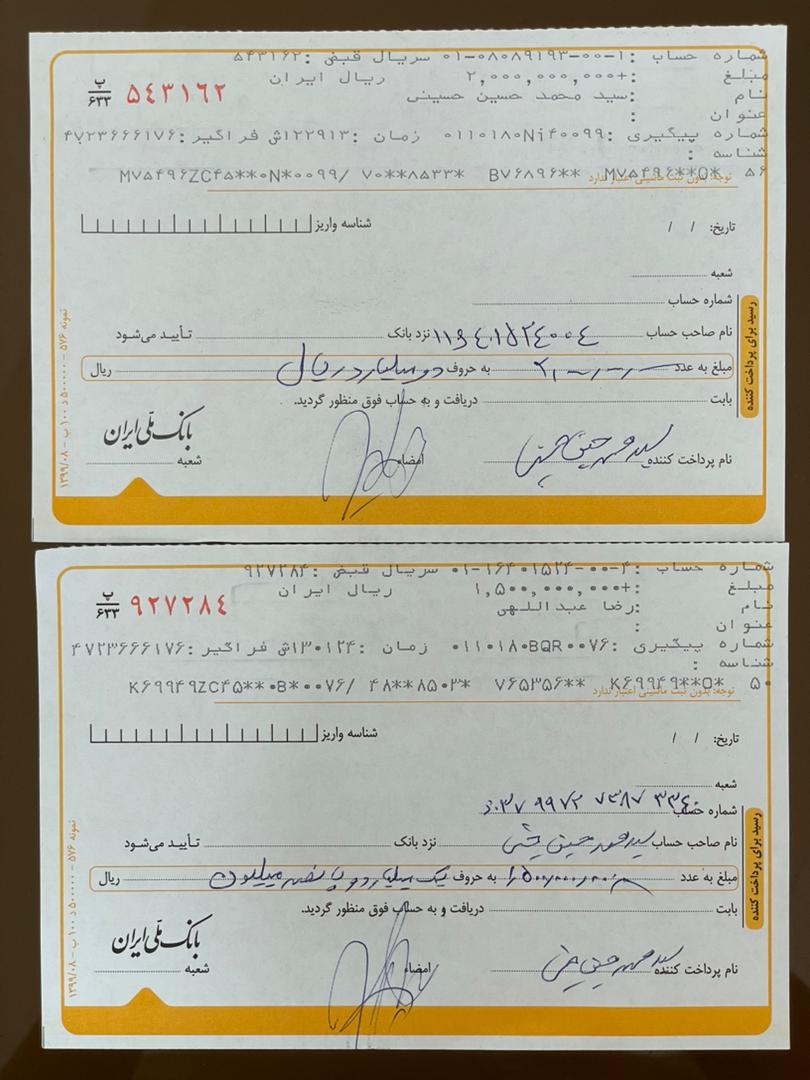 شماره حساب :۱-۰۰-۰۸۰۸۹۱۹۳-۰۱ سریال قبض :۵۴۳۱۶۲
مبلغ :+۲,۰۰۰,۰۰۰,۰۰۰ ریال ایران
نام :سید محمد حسین حسینی
عنوان :
شماره پیگیری :۰۱۱۰۱۸۰Ni۴۰۰۹۹ زمان :۱۲۲۹۱۳ش فراگیر :۴۷۲۳۶۶۶۱۷۶
شناسه :
۵۶ MV۵۴۹۶**O* BV۶۸۹۶** ۷۰**۸۵۳۳* /MV۵۴۹۶ZC۴۵**۰N*۰۰۹۹
توجه: بدون ثبت ماشینی اعتبار ندارد
پ
۶۳۳
۵۴۳۱۶۲
تاریخ: / / شناسه واریز
شعبه
شماره حساب
نام صاحب حساب نزد بانک تأیید می‌شود
مبلغ به عدد به حروف دو میلیارد ریال ریال
بابت دریافت و به حساب فوق منظور گردید.
نام پرداخت کننده سید محمد حسین حسینی امضاء شعبه
بانک ملی ایران
رسید برای پرداخت کننده
نمونه ۵۷۶ – ۵۰۰۰۰۰ د ۱۰۰ ب – ۱۳۹۹/۰۸
شماره حساب :۴-۰۰-۱۶۴۰۱۵۲۴-۰۱ سریال قبض :۹۲۷۲۸۴
مبلغ :+۱,۵۰۰,۰۰۰,۰۰۰ ریال ایران
نام :رضا عبداللهی
عنوان :
شماره پیگیری :۰۱۱۰۱۸۰BQR۰۰۷۶ زمان :۱۳۰۱۲۴ش فراگیر :۴۷۲۳۶۶۶۱۷۶
شناسه :
۵۰ K۶۹۹۴۹**O* V۶۵۳۵۶** ۴۸**۸۵۰۳* /K۶۹۹۴۹ZC۴۵**۰B*۰۰۷۶
توجه: بدون ثبت ماشینی اعتبار ندارد
پ
۶۳۳
۹۲۷۲۸۴
تاریخ: / / شناسه واریز
شعبه
شماره حساب ۶۰۳۷ ۹۹۷۲ ۷۳۸۷ ۳۳۴۰
نام صاحب حساب سید محمد حسین نزد بانک تأیید می‌شود
مبلغ به عدد ۱٫۵۰۰٫۰۰۰٫۰۰۰ به حروف یک میلیارد و پانصد میلیون ریال
بابت دریافت و به حساب فوق منظور گردید.
نام پرداخت کننده سید محمد حسین امضاء شعبه
بانک ملی ایران
رسید برای پرداخت کننده
نمونه ۵۷۶ – ۵۰۰۰۰۰ د ۱۰۰ ب – ۱۳۹۹/۰۸